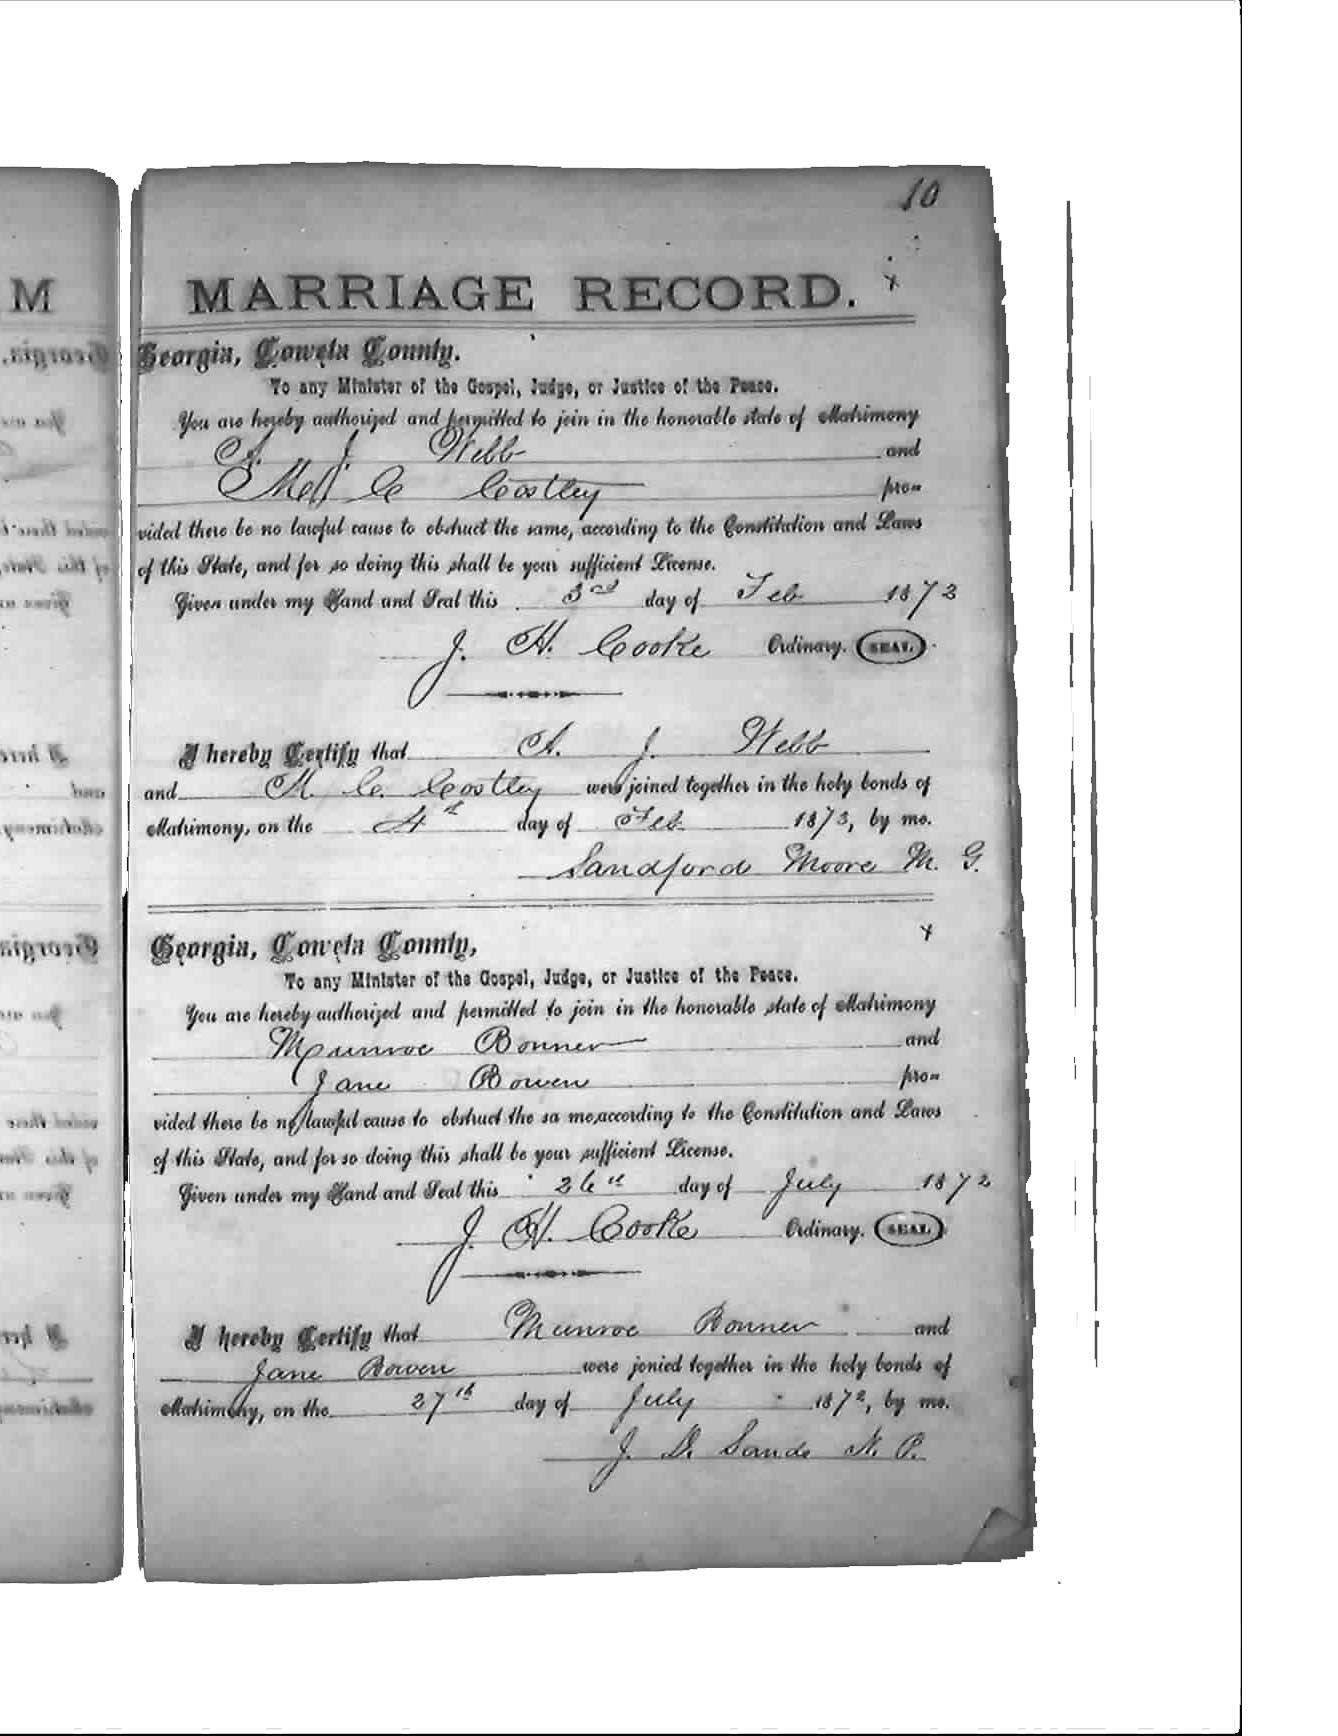 10
M MARRIAGE RECORD. x
Georgia, Coweta County.
To any Minister of the Gospel, Judge, or Justice of the Peace.
You are hereby authorized and permitted to join in the honorable state of Matrimony
A. J. Webb and
C Costley pro=
vided there be no lawful cause to obstruct the same, according to the Constitution and Laws
of this State, and for so doing this shall be your sufficient License.
Given under my Hand and Seal this 3rd day of Feb 1873
J. H. Cooke Ordinary. SEAL.
I hereby Certify that A. J. Webb
and M. C. Costley were joined together in the holy bonds of
Matrimony, on the 4th day of Feb 1873, by me.
Sandford Moore M. G.
x
Georgia, Coweta County,
To any Minister of the Gospel, Judge, or Justice of the Peace.
You are hereby authorized and permitted to join in the honorable state of Matrimony
Munroe Bonner and
Jane Bowen pro=
vided there be no lawful cause to obstruct the sa me,according to the Constitution and Laws
of this State, and for so doing this shall be your sufficient License.
Given under my Hand and Seal this 26th day of July 1872
J. H. Cooke Ordinary. SEAL
I hereby Certify that Munroe Bonner and
Jane Bowen were jonied together in the holy bonds of
Matrimony, on the 27th day of July 1872, by me.
J. D. Sands N. P.